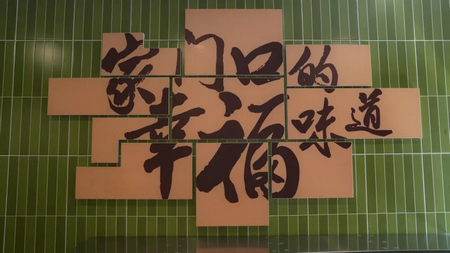 家门口的
幸福味道